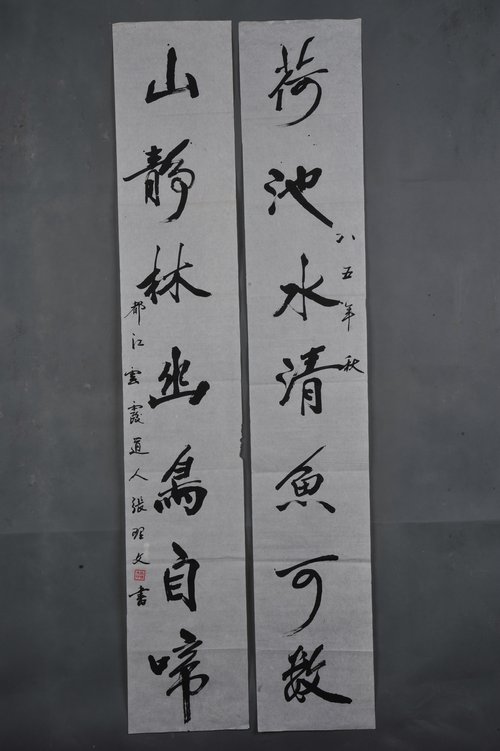 荷池水清魚可数
八五年秋
山静林幽鳥自啼
都江雲霞道人張理文書